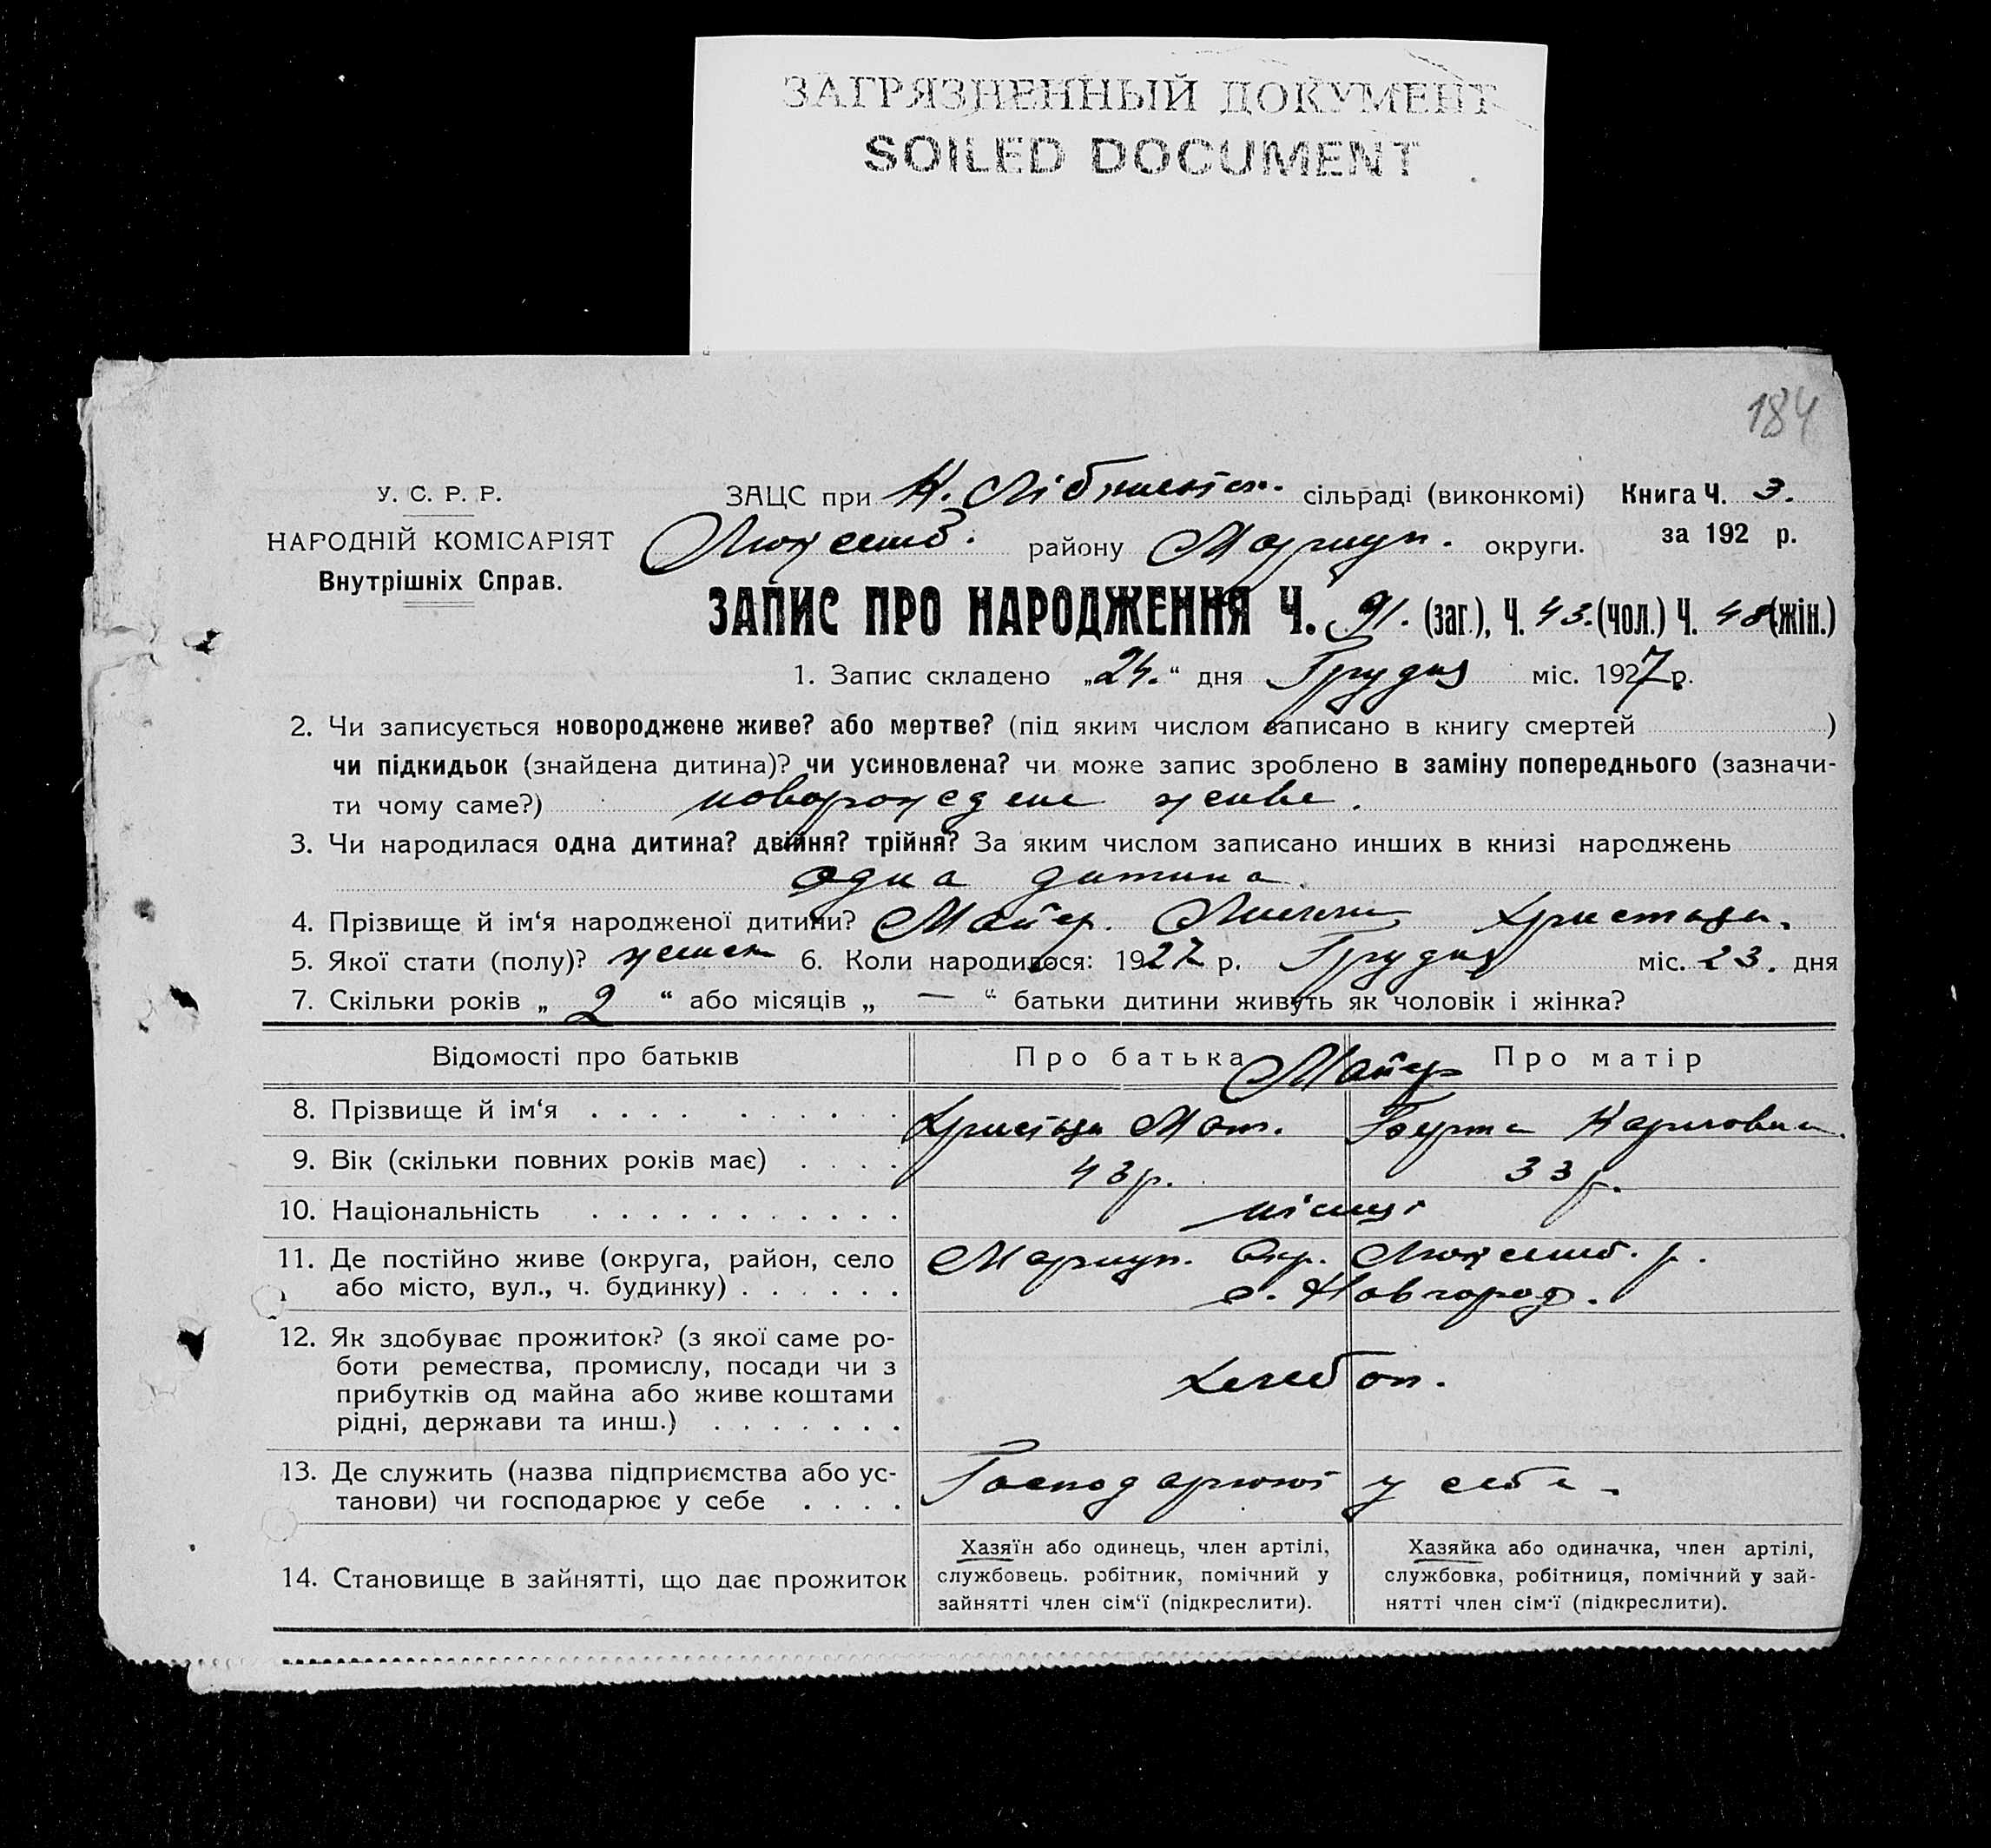 ЗАГРЯЗНЕННЫЙ ДОКУМЕНТ
SOILED DOCUMENT
184
У. С. Р. Р.
НАРОДНІЙ КОМІСАРІЯТ
Внутрішніх Справ.
ЗАЦС при сільраді (виконкомі) Книга Ч. 3.
Люксемб. району Маріуп. округи. за 192 р.
ЗАПИС ПРО НАРОДЖЕННЯ Ч. 91. (заг.), Ч. 43. (чол.) Ч. 48 (жін.)
1. Запис складено „24.“ дня Грудня міс. 1927 р.
2. Чи записується новороджене живе? або мертве? (під яким числом записано в книгу смертей )
чи підкидьок (знайдена дитина)? чи усиновлена? чи може запис зроблено в заміну попереднього (зазначи-
ти чому саме?) новорожедене живе.
3. Чи народилася одна дитина? двійня? трійня? За яким числом записано инших в книзі народжень
одна дитина.
4. Прізвище й ім‘я народженої дитини? Майер.
5. Якої стати (полу)? 6. Коли народилося: 1927 р. Грудня міс. 23. дня
7. Скільки років „ 2 “ або місяців „ — “ батьки дитини живуть як чоловік і жінка?
Відомості про батьків Про батька Про матір
Майер
8. Прізвище й ім‘я . . . . . . . . . . Мат. Берта Карловна.
9. Вік (скільки повних років має) . . . . 43р. 33р.
10. Національність . . . . . . . . . . . німці
11. Де постійно живе (округа, район, село Маріуп. Окр. Люксемб. р.
або місто, вул., ч. будинку) . . . . . . с. Новгород.
12. Як здобуває прожиток? (з якої саме ро-
боти ремества, промислу, посади чи з
прибутків од майна або живе коштами
рідні, держави та инш.) . . . . . . . хлебоп.
13. Де служить (назва підприємства або ус-
танови) чи господарює у себе . . . . Господарюют у себе.
14. Становище в зайнятті, що дає прожиток
Хазяїн або одинець, член артілі,
службовець. робітник, помічний у
зайнятті член сім‘ї (підкреслити).
Хазяйка або одиначка, член артілі,
службовка, робітниця, помічний у зай-
нятті член сім‘ї (підкреслити).